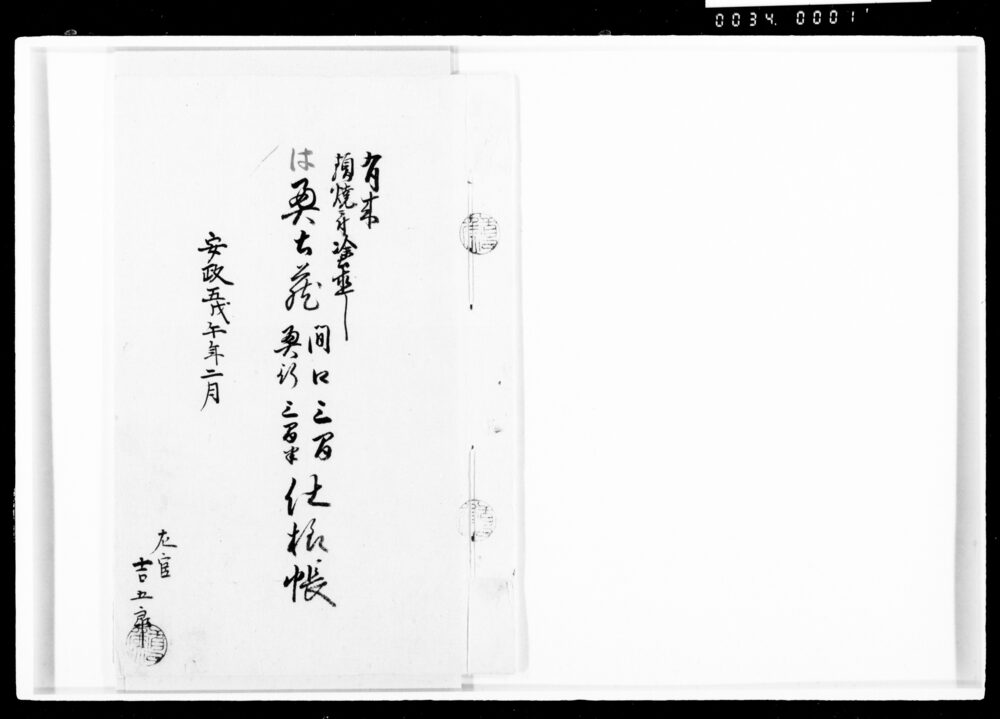 0034. 0001
有来
類焼ニ付塗直シ
は
奥土蔵
間口三間
奥行三間半
仕様帳
安政五戊午年二月
左官
吉五郎